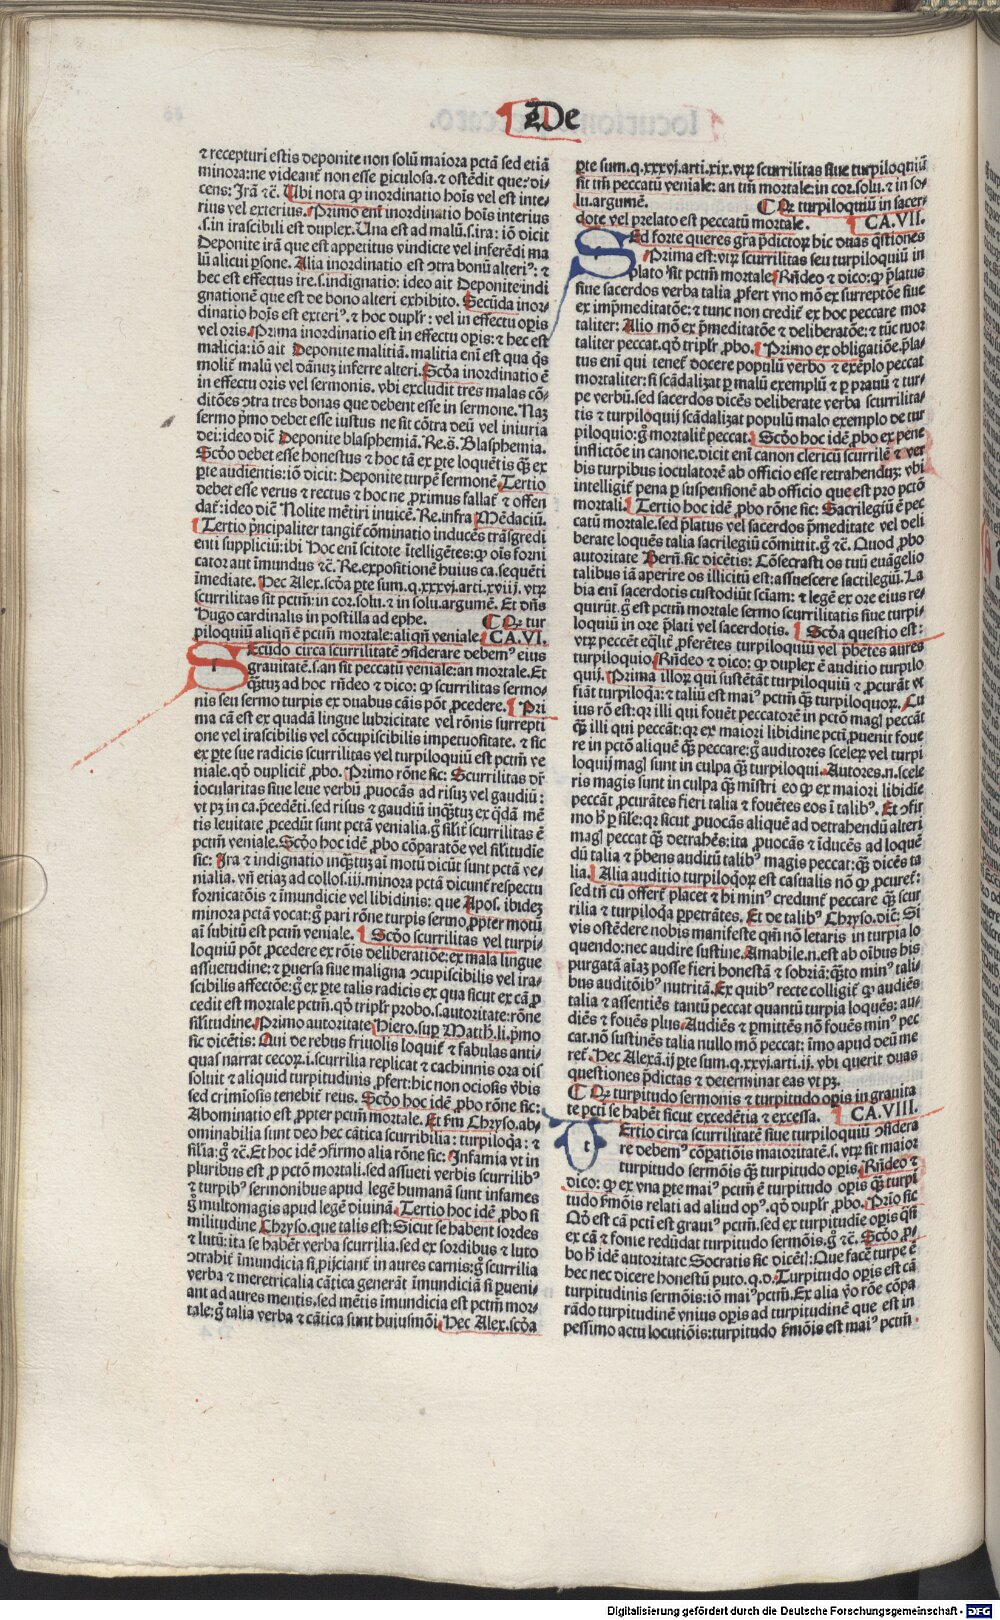 De
⁊ recepturi estis deponite non solū maiora pctā sed etiā
minora: ne videant̄ non esse ꝑiculosa. ⁊ ostēdit que: di-
cens: Irā ⁊c̄. Ubi nota ꝙ inordinatio hoīs vel est inte-
rius vel exterius. Primo em̄ inordinatio hoīs interius
.s. in irascibili est duplex. Una est ad malū. s. ira: iō dicit
Deponite irā que est appetitus vindicte vel inferēdi ma
lū alicui ꝑsone. Alia inordinatio est ↄtra bonū alteriꝰ: ⁊
hec est effectus ire. s. indignatio: ideo ait Deponite indi
gnationē que est de bono alteri exhibito. Secūda inor
dinatio hoīs est exteriꝰ. ⁊ hoc duplr̄: vel in effectu oꝑis
vel oris. Prima inordinatio est in effectu oꝑis: ⁊ hec est
malicia: iō ait Deponite malitiā. malitia eni est qua q̄s
molit̄ malū vel dānuʒ inferre alteri. Scḋa inordinatio ē
in effectu oris vel sermonis. vbi excludit tres malas cō-
ditōes ↄtra tres bonas que debent esse in sermone. Naʒ
sermo p̄mo debet esse iustus ne sit cōtra deū vel iniuria
dei: ideo dic̄ Deponite blasphemiā. Re. s̄. Blasphemia.
Scḋo debet esse honestus ⁊ hoc tā ex ꝑte loquētis q̄ʒ ex
ꝑte audientis: iō dicit: Deponite turpē sermonē. Tertio
debet esse verus ⁊ rectus ⁊ hoc ne ꝓximus fallat̄ ⁊ offen
dat̄: ideo dic̄ Nolite mētiri inuicē. Re. infra Mēdaciū.
Tertio p̄ncipaliter tangit̄ cōminatio inducēs trāsgredi
enti suppliciū: ibi Hoc eni scitote ītelligētes: ꝙ oīs forni
cator aut īmundus ⁊c̄. Re. expositionē huius ca. sequēti
īmediate. Hec Alex. scḋa ꝑte sum. q. xxxvj. arti. xviij. vtꝝ
scurrilitas sit pctm̄: in cor. solu. ⁊ in solu. argumē. Et dn̄s
Hugo cardinalis in postilla ad ephe. ¶ Qꝛ tur
piloquiū aliqn̄ ē pctm̄ mortale: aliqn̄ veniale. CA. VI.
SEcūdo circa scurrilitatē ↄsiderare debemꝰ eius
grauitatē. s. an sit peccatū veniale: an mortale. Et
q̄ʒtuʒ ad hoc rn̄deo ⁊ dico: ꝙ scurrilitas sermo-
nis seu sermo turpis ex duabus cāis pōt ꝓcedere. Pri
ma cā est ex quadā lingue lubricitate vel rōnis surrepti
one vel irascibilis vel cōcupiscibilis impetuositate. ⁊ sic
ex ꝑte sue radicis scurrilitas vel turpiloquiū est pctm̄ ve
niale. qḋ duplicit̄ ꝓbo. Primo rōne sic: Scurrilitas dr̄
iocularitas siue leue verbū ꝓuocās ad risuʒ vel gaudiū:
vt pʒ in ca. p̄cedēti. sed risus ⁊ gaudiū inq̄ʒtuʒ ex q̄dā mē
tis leuitate ꝓcedūt sunt pctā venialia. g̊ silit̄ scurrilitas ē
pctm̄ veniale. Scḋo hoc idē ꝓbo cōparatōe vel silitudīe
sic: Ira ⁊ indignatio inq̄ʒtuʒ aī motū dicūt sunt pctā ve-
nialia. vn̄ etiaʒ ad collos. iij. minora pctā dicunt̄ respectu
fornicatōis ⁊ īmundicie vel libidinis: que Apos. ibideʒ
minora pctā vocat: g̊ pari rōne turpis sermo ꝓpter motū
aī subitū est pctm̄ veniale. Scḋo scurrilitas vel turpi-
loquiū pōt ꝓcedere ex rōis deliberatiōe: ex mala lingue
assuetudine: ⁊ ꝑuersa siue maligna ↄcupiscibilis vel ira-
scibilis affectiōe: g̊ ex ꝑte talis radicis ex qua sicut ex cā ꝓ
cedit est mortale pctm̄. qḋ triplr̄ probo. s. autoritate: rōne
silitudine. Primo autoritate Hiero. sup Matth. li. p̄mo
sic dicētis: Qui de rebus friuolis loquit̄ ⁊ fabulas anti-
quas narrat ceteroꝝ. i. scurrilia replicat ⁊ cachinnis ora dis
soluit ⁊ aliquid turpitudinis ꝓfert: hic non ociosis v̄bis
sed crimīosis tenebit̄ reus. Scḋo hoc idē ꝓbo rōne sic:
Abominatio est ꝓpter pctm̄ mortale. Et fm̄ Chryso. ab-
ominabilia sunt deo hec cātica scurribilia: turpiloq̄a: ⁊
silia: g̊ ⁊c̄. Et hoc idē ↄfirmo alia rōne sic: Infamia vt in
pluribus est ꝓ pctō mortali. sed assueti verbis scurrilibꝰ
⁊ turpibꝰ sermonibus apud legē humanā sunt infames
g̊ multomagis apud legē diuinā. Tertio hoc idē ꝓbo si
militudine Chryso. que talis est: Sicut se habent sordes
⁊ lutū: ita se habēt verba scurrilia. sed ex sordibus ⁊ luto
ↄtrahit̄ īmundicia si ꝓijciant̄ in aures carnis: g̊ scurrilia
verba ⁊ meretricalia cātica generāt īmundiciā si ꝑueni-
ant ad aures mentis. sed mētis īmundicia est pctm̄ mor-
tale: g̊ talia verba ⁊ cātica sunt huiusmōi. Hec Alex. scḋa
ꝑte sum. q. xxxvj. arti. xix. vtꝝ scurrilitas siue turpiloquiū
sit tm̄ peccatū veniale: an tm̄ mortale: in cor. solu. ⁊ in so-
lu. argumē. ¶ Qꝛ turpiloquiū in sacer-
dote vel prelato est peccatū mortale. CA. VII.
SEd forte queres gr̄a p̄dictoꝝ hic duas q̄stiones
Prima est: vtꝝ scurrilitas seu turpiloquiū in
p̄lato sit pctm̄ mortale. Rn̄deo ⁊ dico: ꝙ p̄latus
siue sacerdos verba talia ꝓfert vno mō ex surreptōe siue
ex imp̄meditatōe: ⁊ tunc non credit̄ ex hoc peccare mor
taliter: Alio mō ex p̄meditatōe ⁊ deliberatōe: ⁊ tūc mor
taliter peccat. qḋ triplr̄ ꝓbo. Primo ex obligatiōe. p̄la-
tus eni qui tenet̄ docere populū verbo ⁊ exēplo peccat
mortaliter: si scādalizat ꝑ malū exemplū ⁊ ꝑ prauū ⁊ tur-
pe verbū. sed sacerdos dicēs deliberate verba scurrilita-
tis ⁊ turpiloquij scādalizat populū malo exemplo de tur
piloquio: g̊ mortalit̄ peccat. Scḋo hoc idē ꝓbo ex pene
inflictōe in canone. dicit eni canon clericū scurrilē ⁊ ver
bis turpibus ioculatorē ab officio esse retrahenduʒ: vbi
intelligit̄ pena ꝑ suspensionē ab officio que est pro pctō
mortali. Tertio hoc idē ꝓbo rōne sic: Sacrilegiū ē pec
catū mortale. sed p̄latus vel sacerdos p̄meditate vel deli
berate loquēs talia sacrilegiū cōmittit. g̊ ⁊c̄. Quod ꝓbo
autoritate Bern̄. sic dicētis: Cōsecrasti os tuū euāgelio
talibus iā aperire os illicitū est: assuescere sacrilegiū. La
bia eni sacerdotis custodiūt sciam̄: ⁊ legē ex ore eius re-
quirūt. g̊ est pctm̄ mortale sermo scurrilitatis siue turpi-
loquiū in ore p̄lati vel sacerdotis. Scḋa questio est:
vtꝝ peccēt eq̄lit̄ ꝓferētes turpiloquiū vel p̄betes aures
turpiloquio. Rn̄deo ⁊ dico: ꝙ duplex ē auditio turpilo
quij. Prima illoꝝ qui sustētāt turpiloquiū ⁊ ꝓcurāt vt
fiāt turpiloq̄a: ⁊ taliū est maiꝰ pctm̄ q̄ʒ turpiloquoꝝ. Cu
ius rō est: qꝛ illi qui fouēt peccatorē in pctō magl̄ peccāt
q̄ʒ illi qui peccāt: qꝛ ex maiori libidine pcti ꝓuenit foue
re in pctō aliquē q̄ʒ peccare: g̊ auditores sceleꝝ vel turpi
loquij magl̄ sunt in culpa q̄ʒ turpiloqui. Autores. n. scele
ris magis sunt in culpa q̄ʒ mīstri eo ꝙ ex maiori libidīe
peccāt ꝓcurātes fieri talia ⁊ fouētes eos ī talibꝰ. Et ↄfir
mo h̄ ꝑ sile: qꝛ sicut ꝓuocās aliquē ad detrahendū alteri
magl̄ peccat q̄ʒ detrahēs: ita ꝓuocās ⁊ īducēs ad loquē
dū talia ⁊ p̄bens auditū talibꝰ magis peccat: q̄ʒ dicēs ta
lia. Alia auditio turpiloq̄oꝝ est casualis nō ꝙ ꝓcuret̄:
sed tn̄ cū offert̄ placet ⁊ hi minꝰ credunt̄ peccare q̄ʒ scur
rilia ⁊ turpiloq̄a ꝑpetrātes. Et de talibꝰ Chryso. dic̄: Si
vis ostēdere nobis manifeste qm̄ nō letaris in turpia lo
quendo: nec audire sustine. Amabile. n. est ab oībus his
purgatā aīaʒ posse fieri honestā ⁊ sobriā: q̄ʒto minꝰ tali-
bus auditōibꝰ nutritā. Ex quibꝰ recte colligit̄ ꝙ audiēs
talia ⁊ assentiēs tantū peccat quantū turpia loquēs: au-
diēs ⁊ fouēs plus. Audiēs ⁊ ꝑmittēs nō fouēs minꝰ pec
cat. nō sustinēs talia nullo mō peccat: īmo apud deū me
ret̄. Hec Alexā. ij ꝑte sum. q. xxvj. arti. ij. vbi querit duas
questiones p̄dictas ⁊ determinat eas vt pʒ.
¶ Qꝛ turpitudo sermonis ⁊ turpitudo oꝑis in grauita
te pcti se habēt sicut excedētia ⁊ excessa. CA. VIII.
TErtio circa scurrilitatē siue turpiloquiū ↄsidera
re debemꝰ cōꝑatiōis maioritatē. s. vtꝝ sit maior
turpitudo sermōis q̄ʒ turpitudo oꝑis. Rn̄deo ⁊
dico: ꝙ ex vna ꝑte maiꝰ pctm̄ ē turpitudo oꝑis q̄ʒ turpi
tudo s̄mōis relati ad aliud opꝰ. qḋ duplr̄ ꝓbo. Prīo sic
Qḋ est cā pcti est grauiꝰ pctm̄. sed ex turpitudīe oꝑis q̄si
ex cā ⁊ fonte redūdat turpitudo sermōis. g̊ ⁊c̄. Scḋo ꝓ
bo h̄ idē autoritate Socratis sic dicētl̄: Que facē turpe ē
hec nec dicere honestū puto. q. d. Turpitudo oꝑis est cā
turpitudinis sermōis: iō maiꝰ pctm̄. Ex alia v̄o rōe cōpa
rādo turpitudinē vnius oꝑis ad turpitudinē que est in
pessimo actu locutiōis: turpitudo s̄mōis est maiꝰ pctm̄.
Digitalisierung gefördert durch die Deutsche Forschungsgemeinschaft - DFG